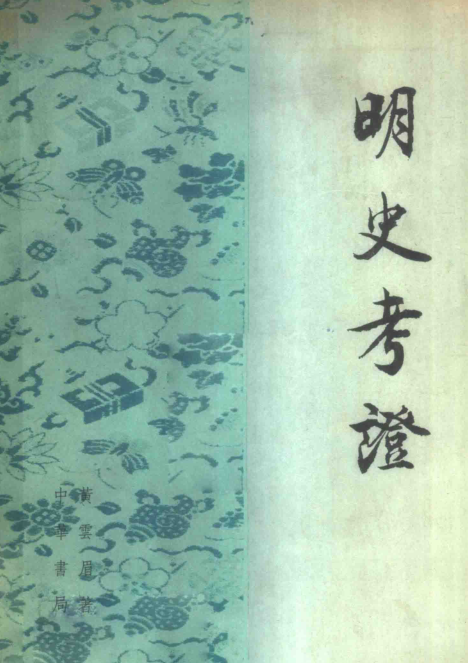 明史考證
黃雲眉著
中華書局